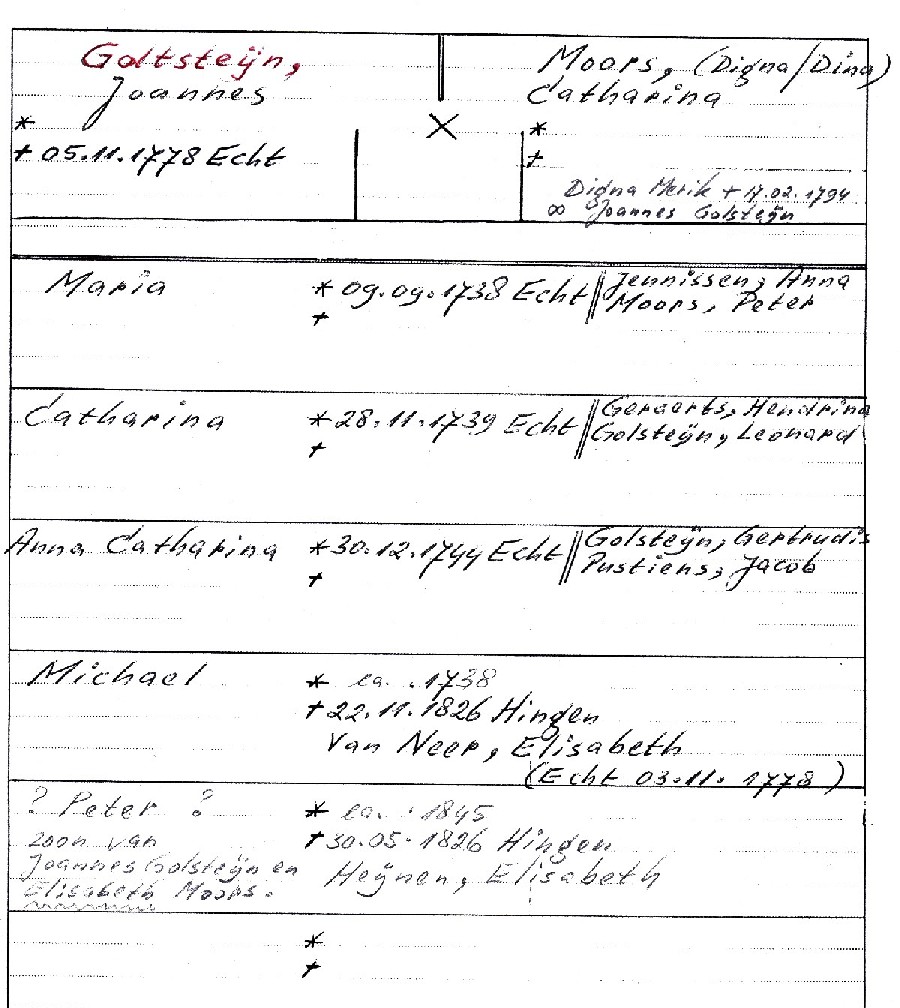 Goltsteÿn,
Joannes
*
+ 05.11.1778 Echt
X
Moors, (Digna/Dina)
Catharina
*
+
Digna Merik + 17.02.1794
∞ Joannes Golsteÿn
Maria * 09.09.1738 Echt || Jennissen, Anna
+ Moors, Peter
Catharina * 28.11.1739 Echt || Geraerts, Hendrina
+ Golsteÿn, Leonard
Anna Catharina * 30.12.1744 Echt || Golsteÿn, Gertrudis
+ Pustiens, Jacob
Michael * ca. .1738
+ 22.11.1826 Hingen
Van Neer, Elisabeth
(Echt 03.11.1778)
? Peter ? * ca. .1845
zoon van + 30.05.1826 Hingen
Joannes Golsteÿn en Heÿnen, Elisabeth
Elisabeth Moors.
*
+